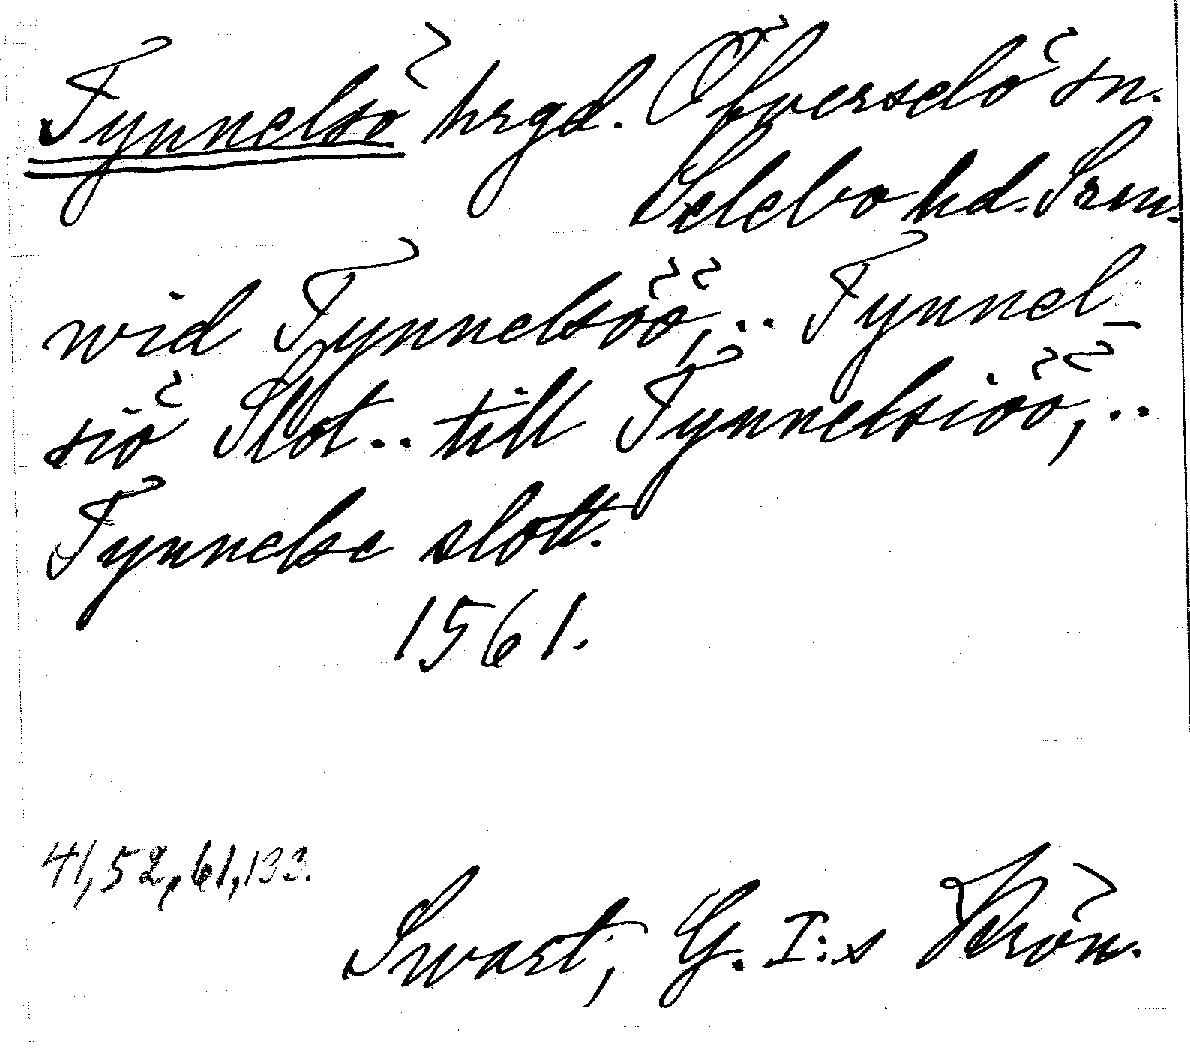 Tynnelsö hrgd. Öfverselö sn.
Selebo hd. Srm.
wid Tynnelsöö, .. Tynnel-
siö Slot .. till Tynnelsiöö, ..
Tynnelse slott.
1561.
41, 52, 61, 133.
Swart, G. I:s Krön.